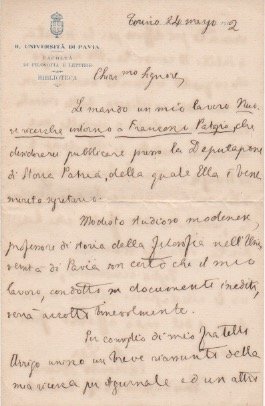 R. UNIVERSITÀ DI PAVIA
FACOLTÀ
DI FILOSOFIA E LETTERE
BIBLIOTECA
Torino 24 marzo
Chiar.mo Signore,
Le mando un mio lavoro Nuo-
ve ricerche intorno a Francesco Patrizio, che
desidererei pubblicare presso la Deputazione
di Storia Patria, della quale Ella è bene
merito segretario.
Modesto studioso modenese,
professore di storia della filosofia nell'Uni
versità di Pavia son certo che il mio
lavoro, condotto su documenti inediti,
verrà accolto benevolmente.
Per consiglio di mio fratello
Arrigo unisco un breve riassunto della
mia ricerca pel Giornale ed un altro